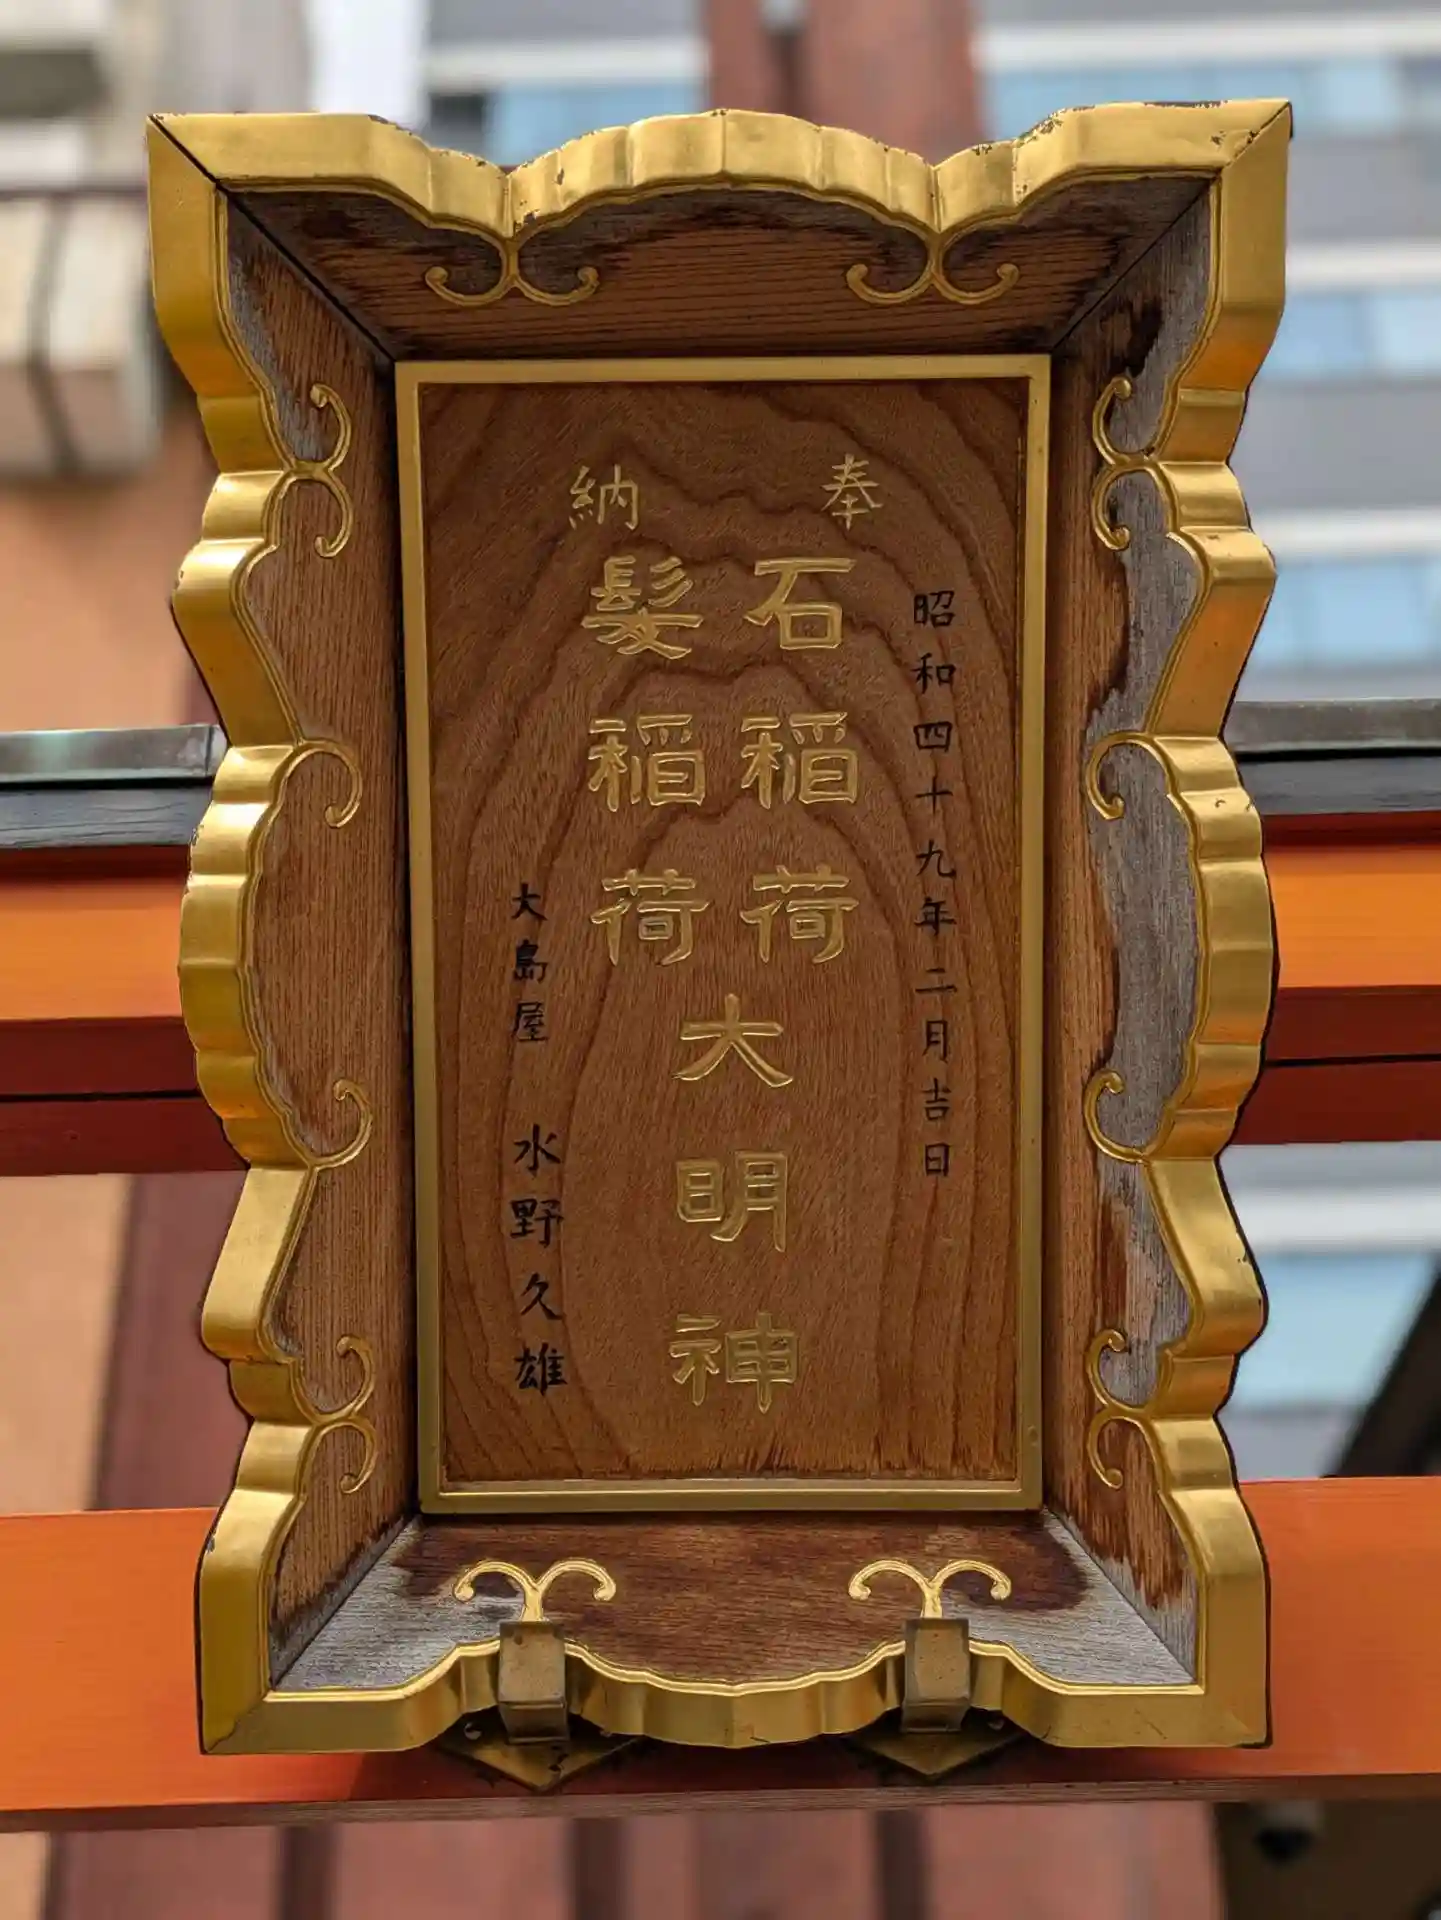 奉納
昭和四十九年二月吉日
石稲荷
髮稲荷
大明神
大島屋 水野久雄